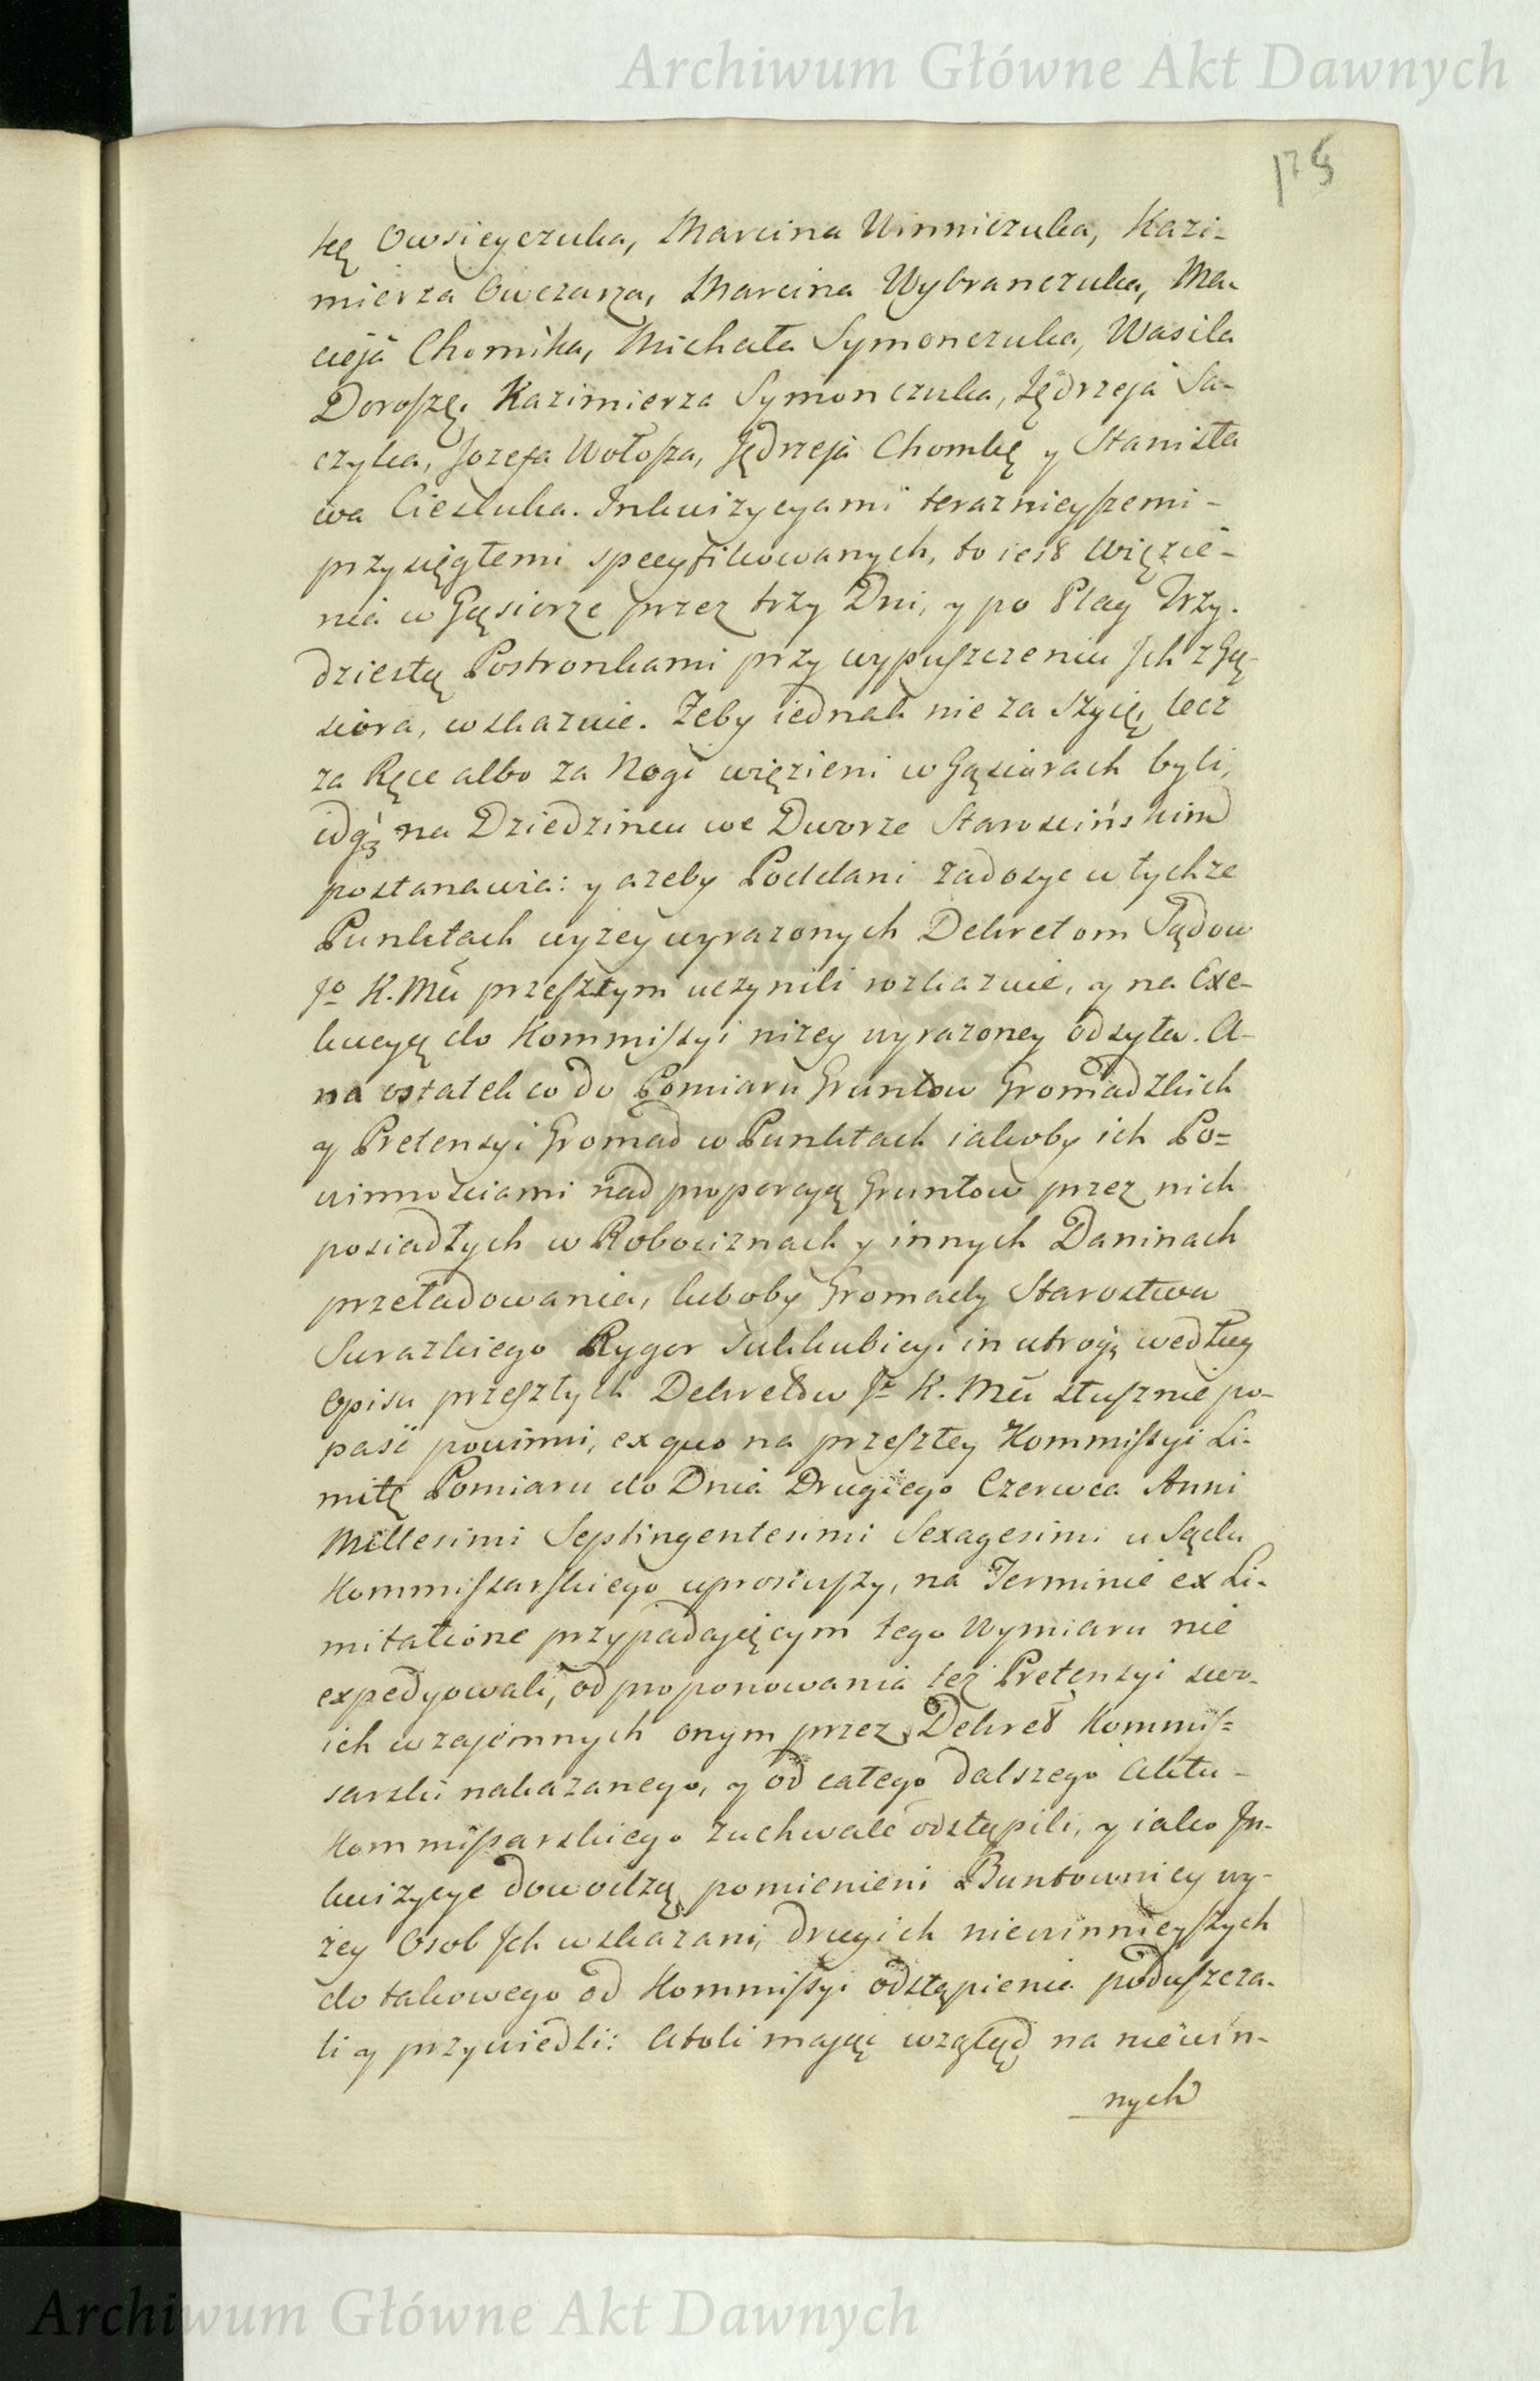 Archiwum Główne Akt Dawnych
175
kę Owsieyczuka, Marcina Winniczuka, Kazi-
mierza Owczarza, Marcina Wybranczuka, Ma-
cieja Chomika, Michała Symonczuka, Wasila
Doroszę, Kazimierza Symonczuka, Jędrzeja Sa-
czyka, Jozefa Wołosza, Jędrzeja Chomkę y Stanisła
wa Ciesluka. Inkwizycyami teraznieyszemi-
przysięgłemi specyfikowanych, to iest więzie-
nia w Gąsiorze przez trzy Dni, y po Plag Trzy-
dziestą Postronkami przy wypuszczeniu Jch z Gą-
siora, wskazuie. Zeby iednak nie za Szyię, lecz
za Ręce albo za Nogi więzieni w Gąsiorach byli,
idąż na Dziedzincu we Dworze Starościńskim
postanawia: y azeby Poddani zadosyc w tychze
Punktach wyzey wyrazonych Dekretom Sądow
Jo K. Mci przeszłym uczynili rozkazuie, y na Exe-
kucyą do Kommissyi nizey wyrazoney odsyła. A-
na ostatek co do Pomiaru Gruntow Gromadzkich
y Pretensyi Gromad w Punktach iakoby ich Po=
winnosciami nad proporcyą Gruntow przez nich
posiadłych w Robociznach y innych Daninach
przeładowania, luboby Gromady Starostwa
Surazkiego Rygor Sukkubicyi in utroq, według
Opisu przeszłych Dekretow Jo K. Mci słusznie po-
paść powinni, ex quo na przeszłey Kommissyi Li-
mitę Pomiaru do Dnia Drugiego Czerwca Anni
Millesimi Septingentesimi Sexagesimi u Sądu
Kommissarskiego uprosiwszy, na Terminie ex Li-
mitatione przypadaiącym tego Wymiaru nie
expedyowali, od proponowania tez Pretensyi swo-
ich wzajemnych onym przez Dekret Kommis=
sarski nakazanego, y od całego dalszego Aktu-
Kommissarskiego zuchwale odstąpili, y iako In-
kwizycye dowodzą pomienieni Buntownicy wy-
zey Osob Jch wskazani, drugich niewinnieyszych
do takowego od Kommissyi odstąpienia poduszcza-
li y przywiedli: Atoli mając wzgląd na niewin-
nych
Archiwum Główne Akt Dawnych